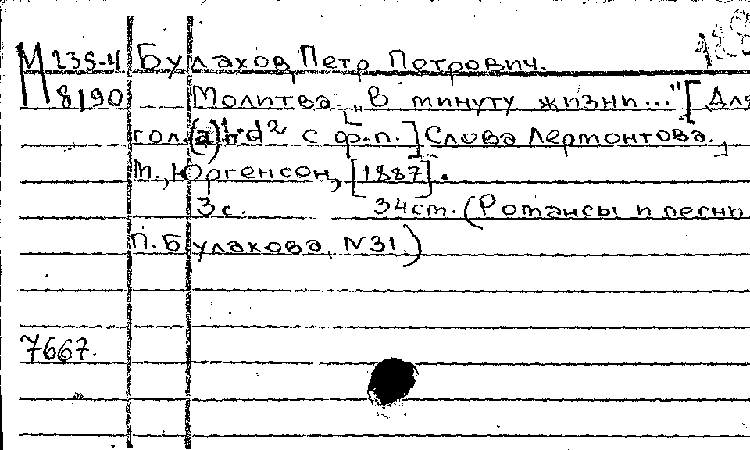 М 235-4 Булахов, Петр Петрович.
8190 Молитва „В минуту жизни..." [Для
гол. (a) h-d² с ф.п.] Слова Лермонтова.
М., Юргенсон, [1887].
3 с. 34 ст. (Романсы и песни
П. Булахова, N 31.)
7667.